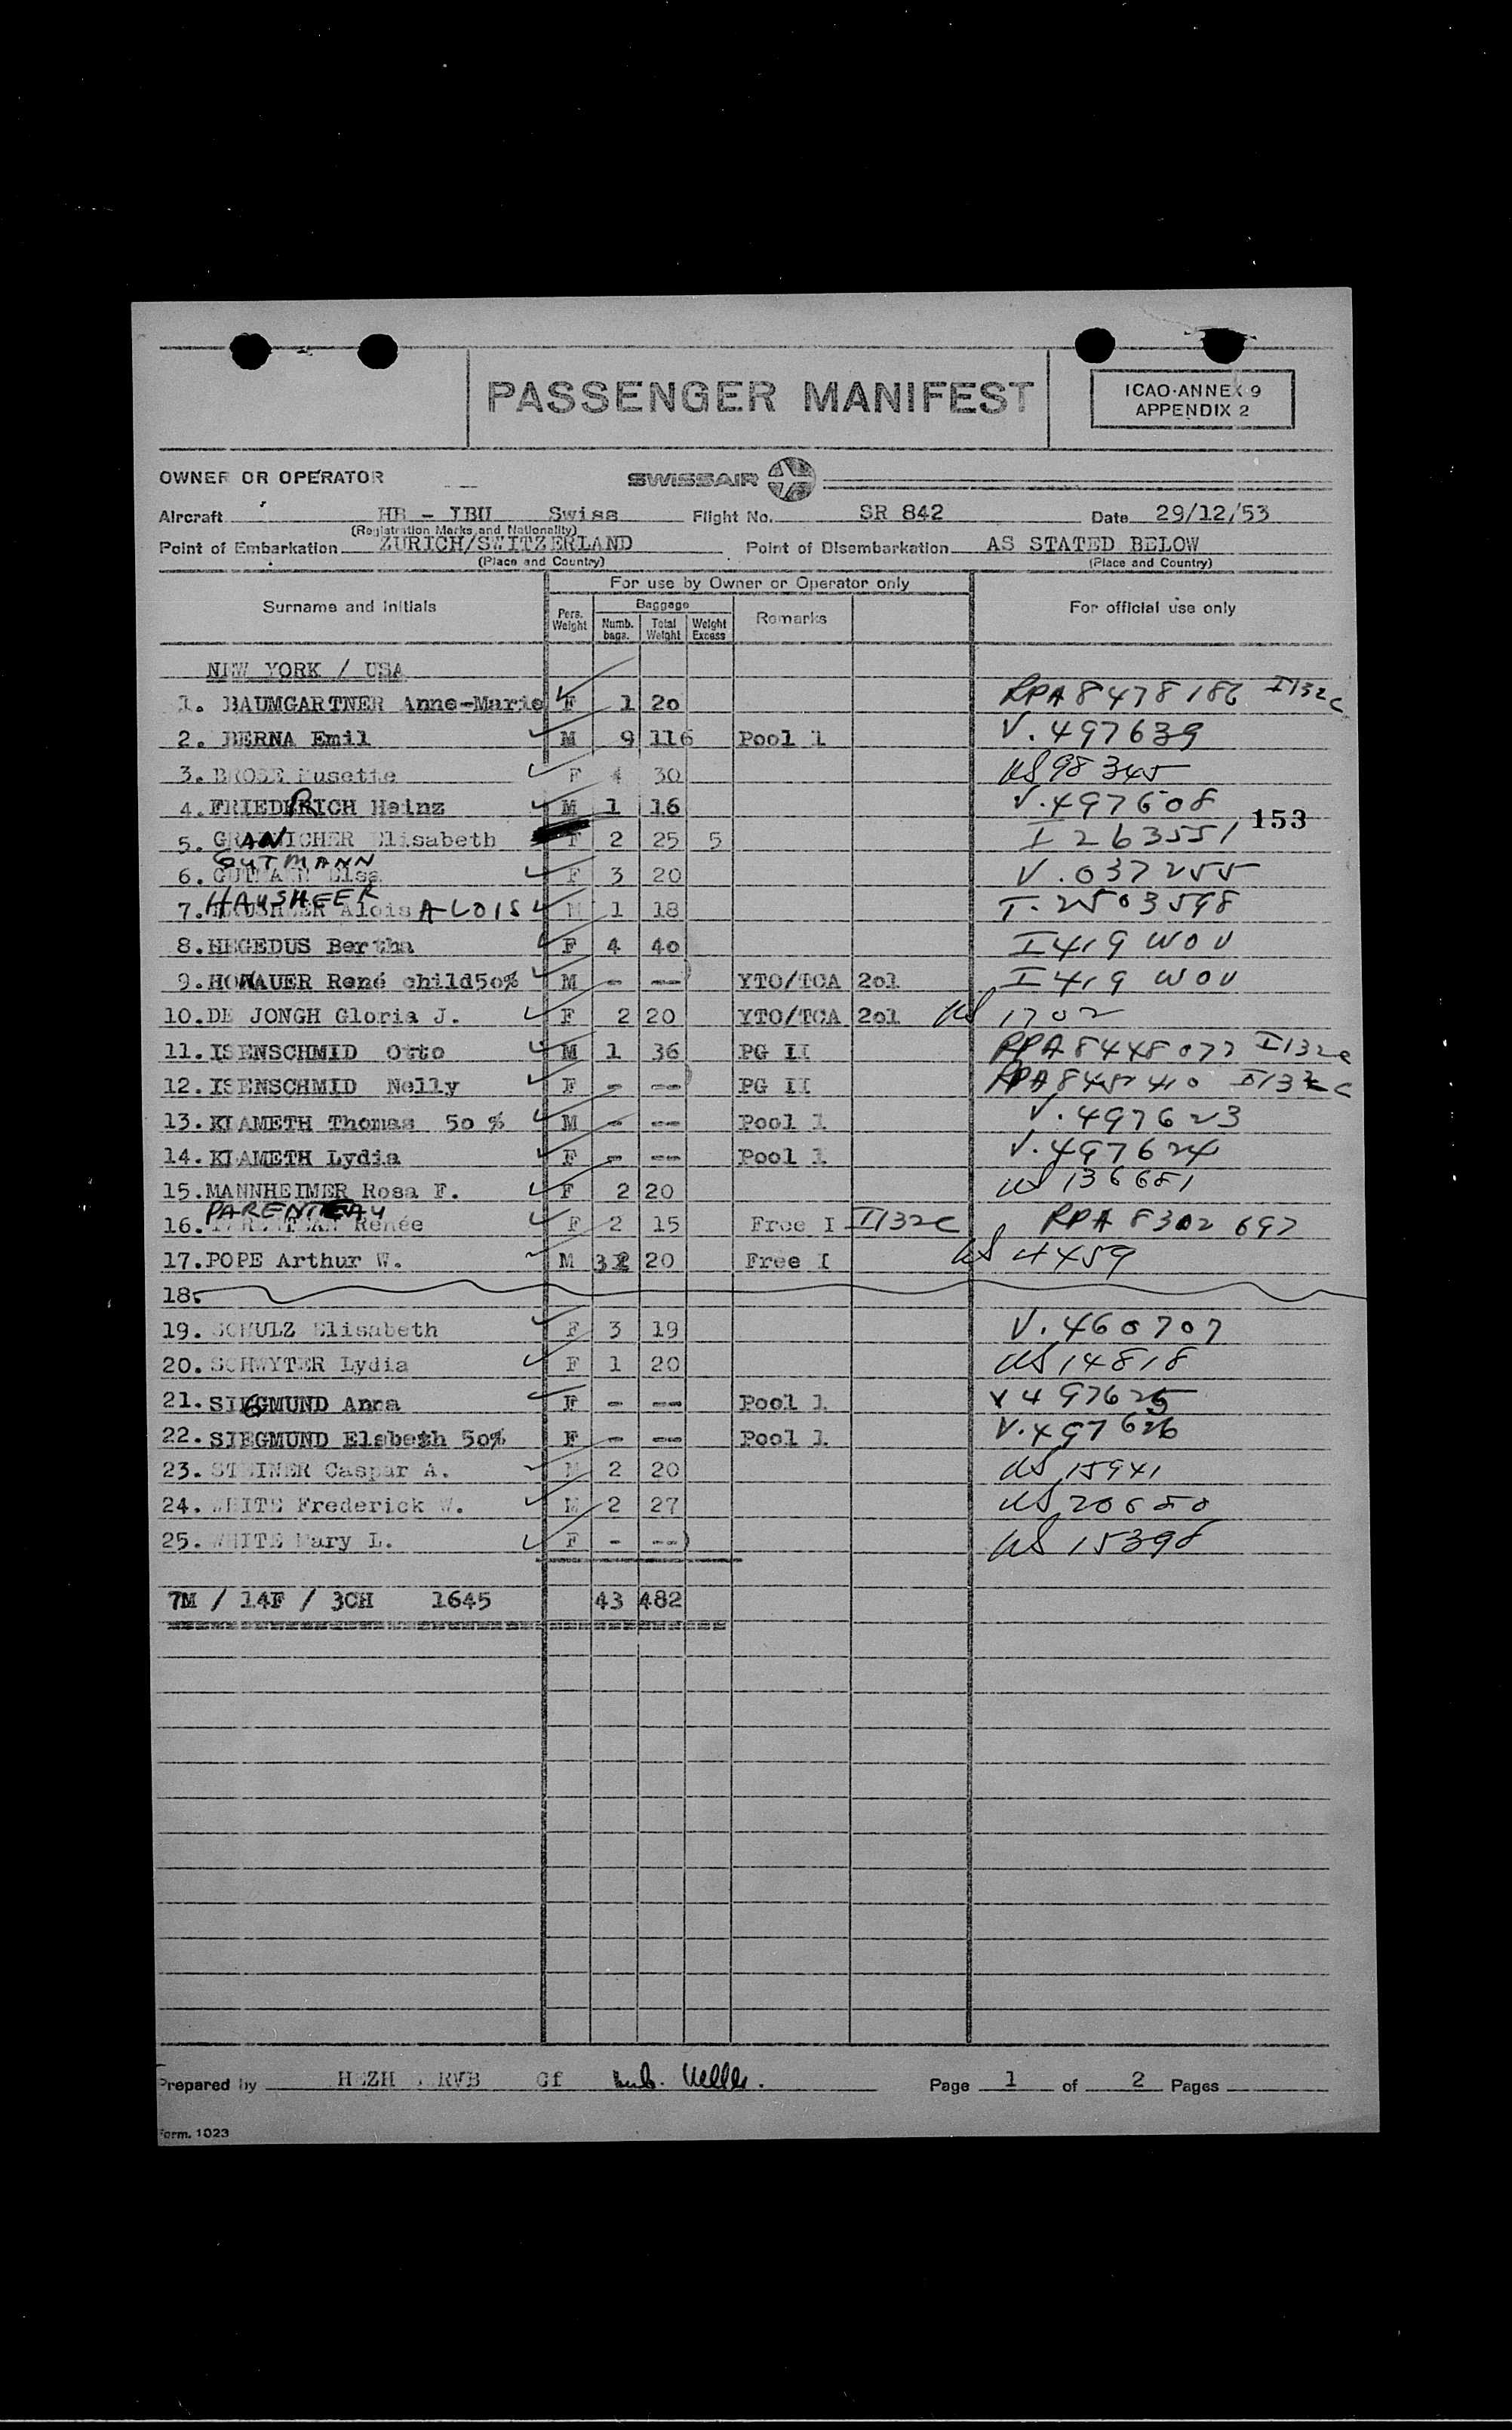 PASSENGER MANIFEST
ICAO·ANNEX 9
APPENDIX 2
OWNER OR OPERATOR
SWISSAIR
Aircraft HB - IBU Swiss Flight No. SR 842 Date 29/12/53
(Registration Marks and Nationality)
Point of Embarkation ZURICH/SWITZERLAND Point of Disembarkation AS STATED BELOW
(Place and Country) (Place and Country)
For use by Owner or Operator only
Surname and initials Pers. Weight Baggage Numb. bags. Total Weight Weight Excess Remarks For official use only
NEW YORK / USA
1. BAUMGARTNER Anne-Marie F 1 20 RPA 8478186 I132c
2. BERNA Emil M 9 116 Pool 1 V. 497639
3. BRODE Musette F 4 30 US 98345
4. FRIEDRICH Heinz M 1 16 V. 497608
153
5. GRANICHER Elisabeth F 2 25 5 I 263551
GUTMANN
6. GUTMANN Elsa F 3 20 V. 037255
HAUSHEER
7. Alois ALOIS M 1 18 T. 2503598
8. HEGEDUS Bertha F 4 40 I 419 WOV
9. HONAUER René child 50% M - -- YTO/TCA 201 I 419 WOV
10. DE JONGH Gloria J. F 2 20 YTO/TCA 201 US 1702
11. ISENSCHMID Otto M 1 36 PG II RPA 8448077 I132c
12. ISENSCHMID Nelly F - -- PG II RPA I132c
13. KLAMETH Thomas 50 % M - -- Pool 1 V. 497623
14. KLAMETH Lydia F - -- Pool 1 V. 497624
15. MANNHEIMER Rosa F. F 2 20 US 136681
PARENTEAU
16. Renée F 2 15 Free I I132c RPA 8302 697
17. POPE Arthur W. M 3 20 Free I US 4459
18.
19. SCHULZ Elisabeth F 3 19 V. 460707
20. SCHWYTER Lydia F 1 20 US 14818
21. SIEGMUND Anna F - -- Pool 1 V 497625
22. SIEGMUND Elsbeth 50% F - -- Pool 1 V. 497626
23. STEINER Caspar A. M 2 20 US 15941
24. WHITE Frederick W. M 2 27 US 20680
25. WHITE Mary L. F - -- US 15398
7M / 14F / 3CH 1645 43 482
Prepared by HEZH Gf Page 1 of 2 Pages
Form. 1023